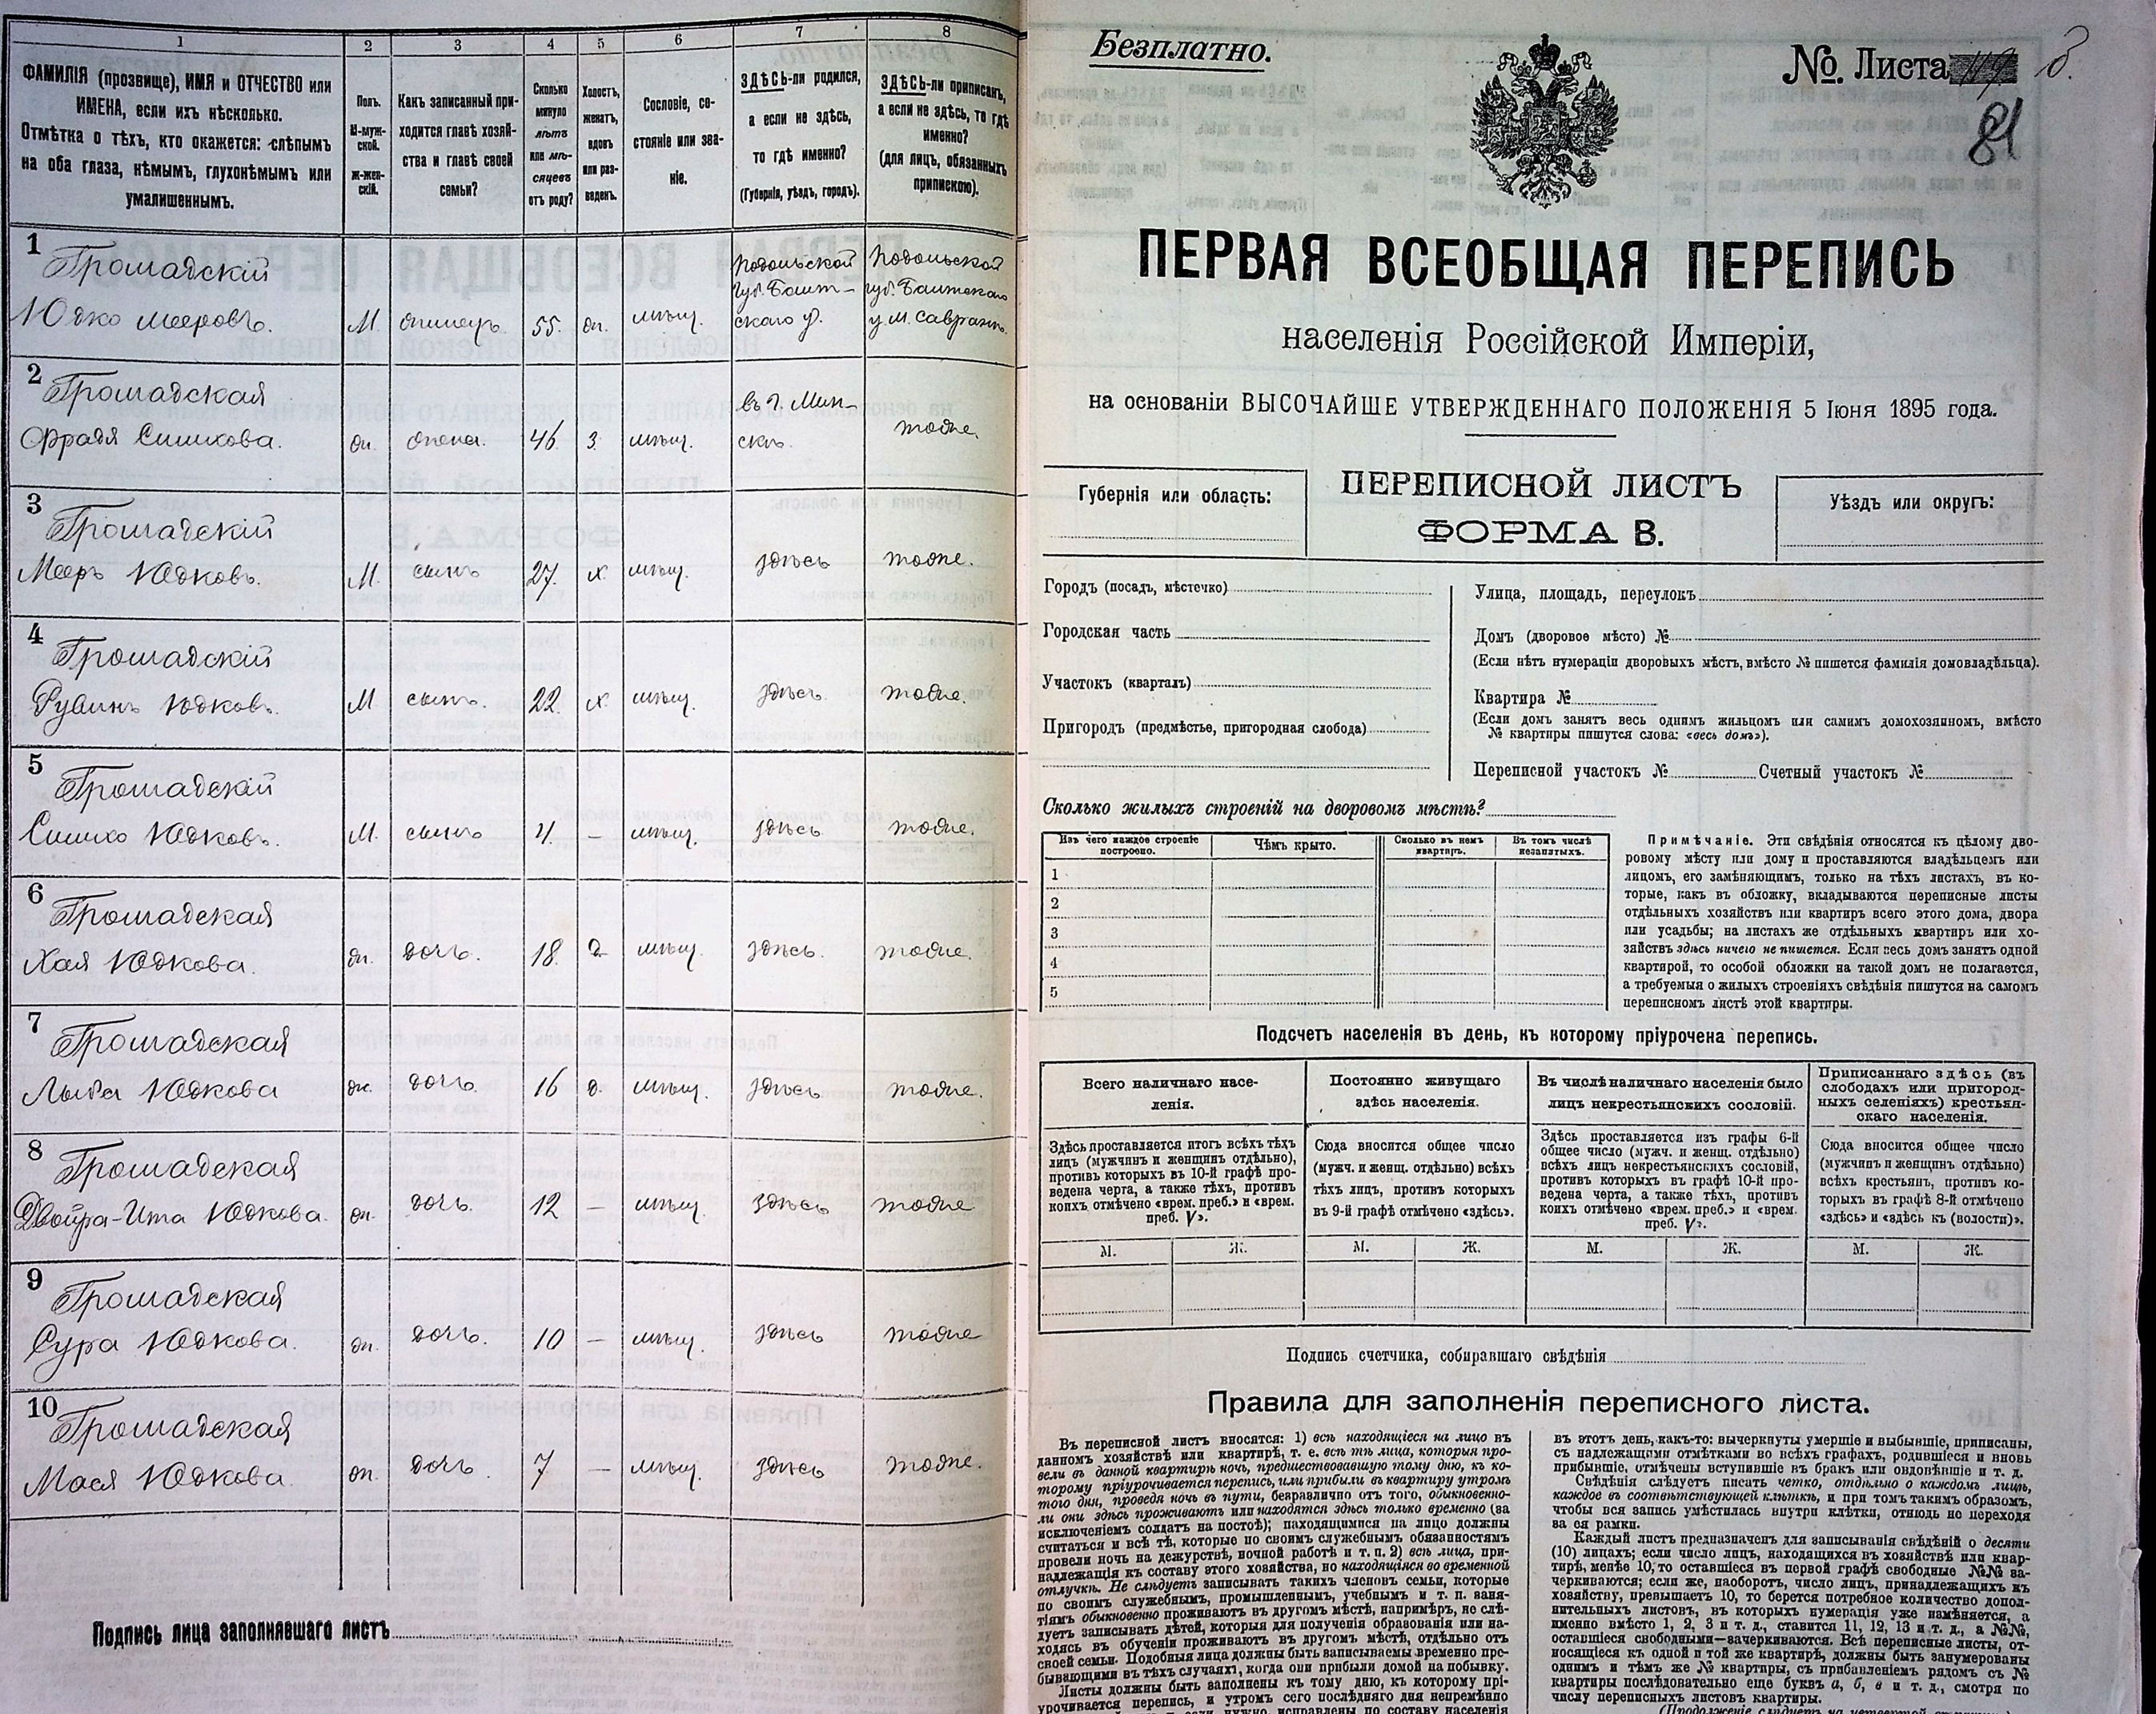 1
2
3
4
5
6
7
8
ФАМИЛІЯ (прозвище), ИМЯ и ОТЧЕСТВО или
ИМЕНА, если ихъ нѣсколько.
Отмѣтка о тѣхъ, кто окажется: слѣпымъ
на оба глаза, нѣмымъ, глухонѣмымъ или
умалишеннымъ.
Полъ.
М-муж-
ской.
Ж-жен-
скій.
Какъ записанный при-
ходится главѣ хозяй-
ства и главѣ своей
семьи?
Сколько
минуло
лѣтъ
или мѣ-
сяцевъ
отъ роду?
Холостъ,
женатъ,
вдовъ
или раз-
веденъ.
Сословіе, со-
стояніе или зва-
ніе.
ЗДѢСЬ-ли родился,
а если не здѣсь,
то гдѣ именно?
(Губернія, уѣздъ, городъ).
ЗДѢСЬ-ли приписанъ,
а если не здѣсь, то гдѣ
именно?
(для лицъ, обязанныхъ
припискою).
1
Громадскій
Юдко Мееровъ.
М.
55.
мѣщ.
Подольской
губ. Балт-
скаго у.
Подольской
губ. Балтскаго
у. м. Саврань.
2
Громадская
Фрадя Сишкова.
46
з.
мѣщ.
въ г. Мин-
скѣ.
тоже.
3
Громадскій
Мееръ Юдковъ.
М.
сынъ
27.
х.
мѣщ.
здѣсь
тоже.
4
Громадскій
Рувинъ Юдковъ.
М
сынъ.
22.
х.
мѣщ.
здѣсь.
тоже.
5
Громадскій
Сишко Юдковъ.
М.
сынъ
–
мѣщ.
здѣсь
тоже.
6
Громадская
Хая Юдкова.
ж.
дочь.
18.
д.
мѣщ.
здѣсь.
тоже.
7
Громадская
Юдкова
ж.
дочь.
16
д.
мѣщ.
здѣсь
тоже.
8
Громадская
Двойра-Ита Юдкова.
ж.
дочь.
12
–
мѣщ.
здѣсь
тоже
9
Громадская
Сура Юдкова.
ж.
дочь.
10
–
мѣщ.
здѣсь
тоже
10
Громадская
Мася Юдкова.
ж.
дочь.
7
–
мѣщ.
здѣсь
тоже.
Подпись лица заполнявшаго листъ
Безплатно.
№. Листа 119 б.
81
ПЕРВАЯ ВСЕОБЩАЯ ПЕРЕПИСЬ
населенія Россійской Имперіи,
на основаніи ВЫСОЧАЙШЕ УТВЕРЖДЕННАГО ПОЛОЖЕНІЯ 5 Іюня 1895 года.
Губернія или область:
ПЕРЕПИСНОЙ ЛИСТЪ
ФОРМА В.
Уѣздъ или округъ:
Городъ (посадъ, мѣстечко)
Городская часть
Участокъ (кварталъ)
Пригородъ (предмѣстье, пригородная слобода)
Улица, площадь, переулокъ
Домъ (дворовое мѣсто) №
(Если нѣтъ нумераціи дворовыхъ мѣстъ, вмѣсто № пишется фамилія домовладѣльца).
Квартира №
(Если домъ занятъ весь однимъ жильцомъ или самимъ домохозяиномъ, вмѣсто
№ квартиры пишутся слова: «весь домъ»).
Переписной участокъ № Счетный участокъ №
Сколько жилыхъ строеній на дворовомъ мѣстѣ?
Изъ чего каждое строеніе
построено.
Чѣмъ крыто.
Сколько въ немъ
квартиръ.
Въ томъ числѣ
незанятыхъ.
1
2
3
4
5
Примѣчаніе. Эти свѣдѣнія относятся къ цѣлому дво-
ровому мѣсту или дому и проставляются владѣльцемъ или
лицомъ, его замѣняющимъ, только на тѣхъ листахъ, въ ко-
торые, какъ въ обложку, вкладываются переписные листы
отдѣльныхъ хозяйствъ или квартиръ всего этого дома, двора
или усадьбы; на листахъ же отдѣльныхъ квартиръ или хо-
зяйствъ здѣсь ничего не пишется. Если весь домъ занятъ одной
квартирой, то особой обложки на такой домъ не полагается,
а требуемыя о жилыхъ строеніяхъ свѣдѣнія пишутся на самомъ
переписномъ листѣ этой квартиры.
Подсчетъ населенія въ день, къ которому пріурочена перепись.
Всего наличнаго насе-
ленія.
Постоянно живущаго
здѣсь населенія.
Въ числѣ наличнаго населенія было
лицъ некрестьянскихъ сословій.
Приписаннаго здѣсь (въ
слободахъ или пригород-
ныхъ селеніяхъ) крестьян-
скаго населенія.
Здѣсь проставляется итогъ всѣхъ тѣхъ
лицъ (мужчинъ и женщинъ отдѣльно),
противъ которыхъ въ 10-й графѣ про-
ведена черта, а также тѣхъ, противъ
коихъ отмѣчено «врем. преб.» и «врем.
преб. V».
Сюда вносится общее число
(мужч. и женщ. отдѣльно) всѣхъ
тѣхъ лицъ, противъ которыхъ
въ 9-й графѣ отмѣчено «здѣсь».
Здѣсь проставляется изъ графы 6-й
общее число (мужч. и женщ. отдѣльно)
всѣхъ лицъ некрестьянскихъ сословій,
противъ которыхъ въ графѣ 10-й про-
ведена черта, а также тѣхъ, противъ
коихъ отмѣчено «врем. преб.» и «врем.
преб. V».
Сюда вносится общее число
(мужчинъ и женщинъ отдѣльно)
всѣхъ крестьянъ, противъ ко-
торыхъ въ графѣ 8-й отмѣчено
«здѣсь» и «здѣсь къ (волости)».
М. Ж. М. Ж. М. Ж. М. Ж.
Подпись счетчика, собиравшаго свѣдѣнія
Правила для заполненія переписного листа.
Въ переписной листъ вносятся: 1) всѣ находящіеся на лицо въ
данномъ хозяйствѣ или квартирѣ, т. е. всѣ тѣ лица, которыя про-
вели въ данной квартирѣ ночь, предшествовавшую тому дню, къ ко-
торому пріурочивается перепись, или прибыли въ квартиру утромъ
того дня, проведя ночь въ пути, безразлично отъ того, обыкновенно-
ли они здѣсь проживаютъ или находятся здѣсь только временно (за
исключеніемъ солдатъ на постоѣ); находящимися на лицо должны
считаться и всѣ тѣ, которые по своимъ служебнымъ обязанностямъ
провели ночь на дежурствѣ, ночной работѣ и т. п. 2) всѣ лица, при-
надлежащія къ составу этого хозяйства, но находящіяся во временной
отлучкѣ. Не слѣдуетъ записывать такихъ членовъ семьи, которые
по своимъ служебнымъ, промышленнымъ, учебнымъ и т. п. заня-
тіямъ обыкновенно проживаютъ въ другомъ мѣстѣ, напримѣръ, не слѣ-
дуетъ записывать дѣтей, которыя для полученія образованія или на-
ходясь въ обученіи проживаютъ въ другомъ мѣстѣ, отдѣльно отъ
своей семьи. Подобныя лица должны быть записываемы временно пре-
бывающими въ тѣхъ случаяхъ, когда они прибыли домой на побывку.
Листы должны быть заполнены къ тому дню, къ которому прі-
урочивается перепись, и утромъ сего послѣдняго дня непремѣнно
въ этотъ день, какъ-то: вычеркнуты умершіе и выбывшіе, приписаны,
съ надлежащими отмѣтками во всѣхъ графахъ, родившіеся и вновь
прибывшіе, отмѣчены вступившіе въ бракъ или овдовѣвшіе и т. д.
Свѣдѣнія слѣдуетъ писать четко, отдѣльно о каждомъ лицѣ,
каждое въ соотвѣтствующей клѣткѣ, и при томъ такимъ образомъ,
чтобы вся запись умѣстилась внутри клѣтки, отнюдь не переходя
за ея рамки.
Каждый листъ предназначенъ для записыванія свѣдѣній о десяти
(10) лицахъ; если число лицъ, находящихся въ хозяйствѣ или квар-
тирѣ, менѣе 10, то оставшіеся въ первой графѣ свободные №№ за-
черкиваются; если же, наоборотъ, число лицъ, принадлежащихъ къ
хозяйству, превышаетъ 10, то берется потребное количество допол-
нительныхъ листовъ, въ которыхъ нумерація уже измѣняется, а
именно вмѣсто 1, 2, 3 и т. д., ставится 11, 12, 13 и т. д., а №№,
оставшіеся свободными—зачеркиваются. Всѣ переписные листы, от-
носящіеся къ одной и той же квартирѣ, должны быть занумерованы
однимъ и тѣмъ же № квартиры, съ прибавленіемъ рядомъ съ №
квартиры послѣдовательно еще буквъ а, б, в и т. д., смотря по
числу переписныхъ листовъ квартиры.